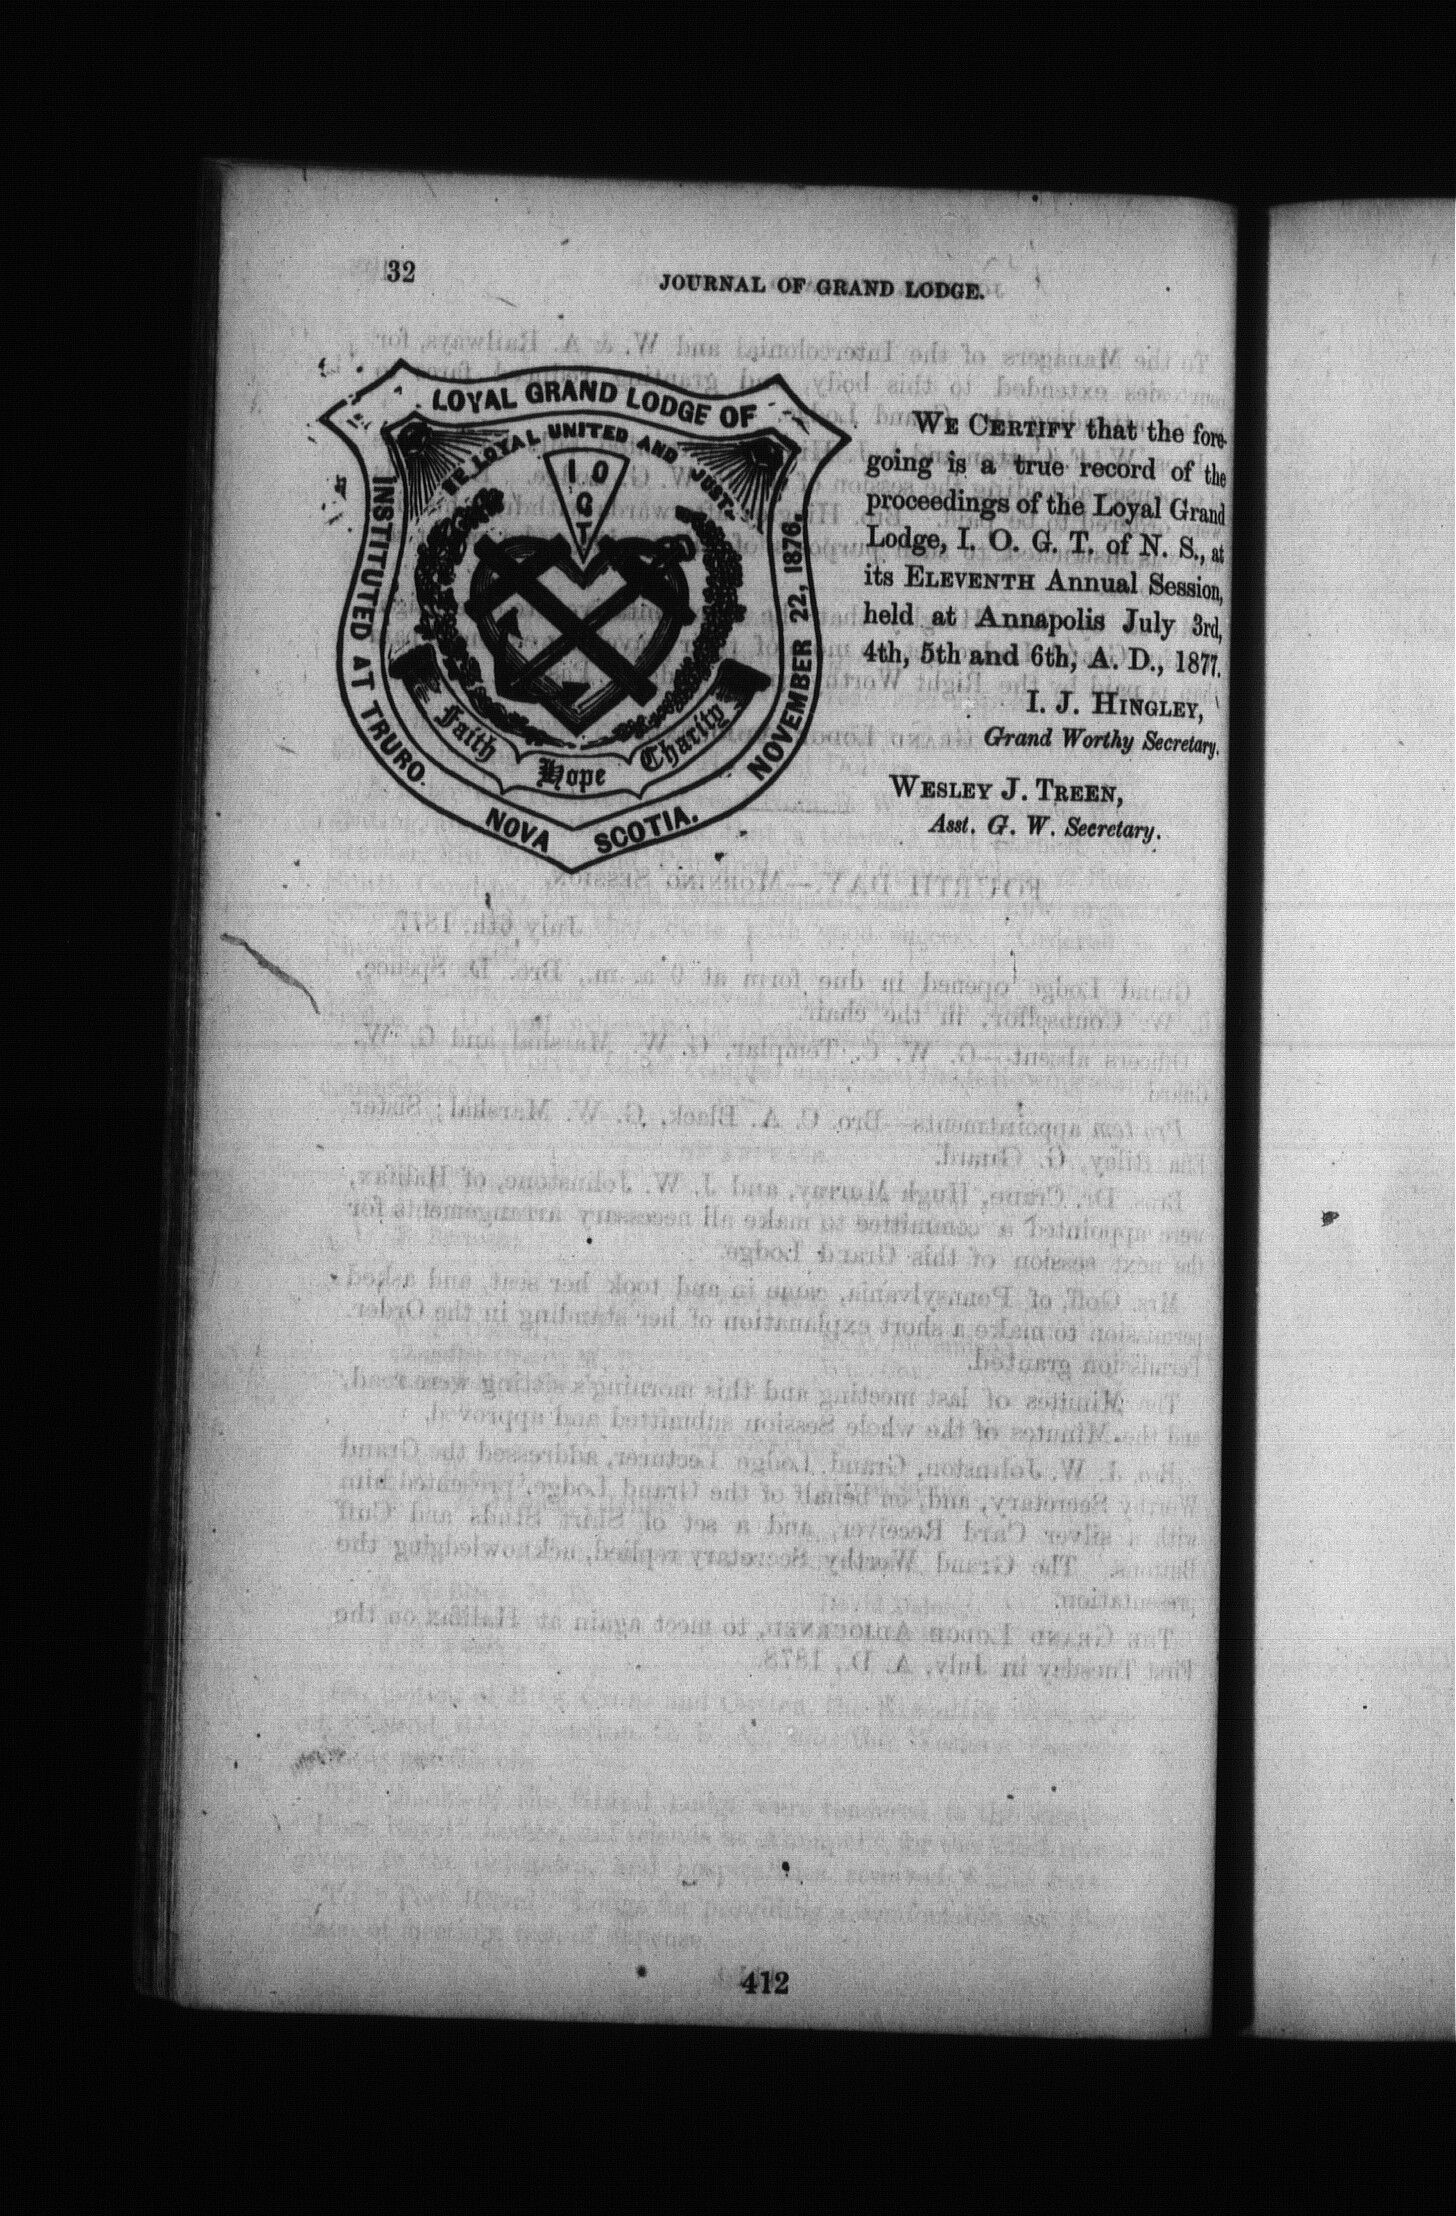 32
JOURNAL OF GRAND LODGE.
LOYAL GRAND LODGE OF
BE LOYAL UNITED AND JUST.
I O
G
T
INSTITUTED AT TRURO.
NOVEMBER 22, 1876,
Faith
Hope
Charity
NOVA SCOTIA.
WE CERTIFY that the fore-
going is a true record of the
proceedings of the Loyal Grand
Lodge, I. O. G. T. of N. S., at
its ELEVENTH Annual Session,
held at Annapolis July 3rd,
4th, 5th and 6th, A. D., 1877.
I. J. HINGLEY,
Grand Worthy Secretary.
WESLEY J. TREEN,
Asst. G. W. Secretary.
412